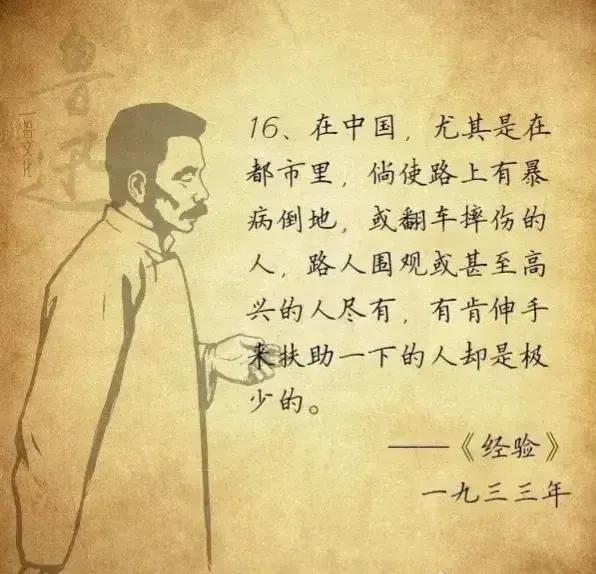 鲁迅
一唱文化
16、在中国，尤其是在
都市里，倘使路上有暴
病倒地，或翻车摔伤的
人，路人围观或甚至高
兴的人尽有，有肯伸手
来扶助一下的人却是极
少的。
——《经验》
一九三三年